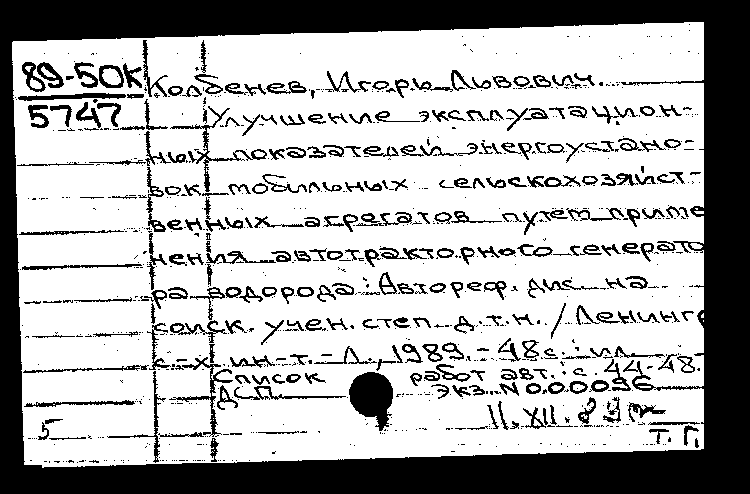 89-50К Колбенев, Игорь Львович.
5747 Улучшение эксплуатацион-
ных показателей энергоустано-
вок мобильных сельскохозяйст-
венных агрегатов путем приме
нения автотракторного генерато
ра водорода: Автореф. дис. на
соиск. учен. степ. д.т.н. / Ленингр
с-х. ин-т. - Л., 1989. - 48с.: ил.
Список работ авт.: с. 44-48.
ДСП. экз. N 000096
5 11.XII.89
Т. Г.